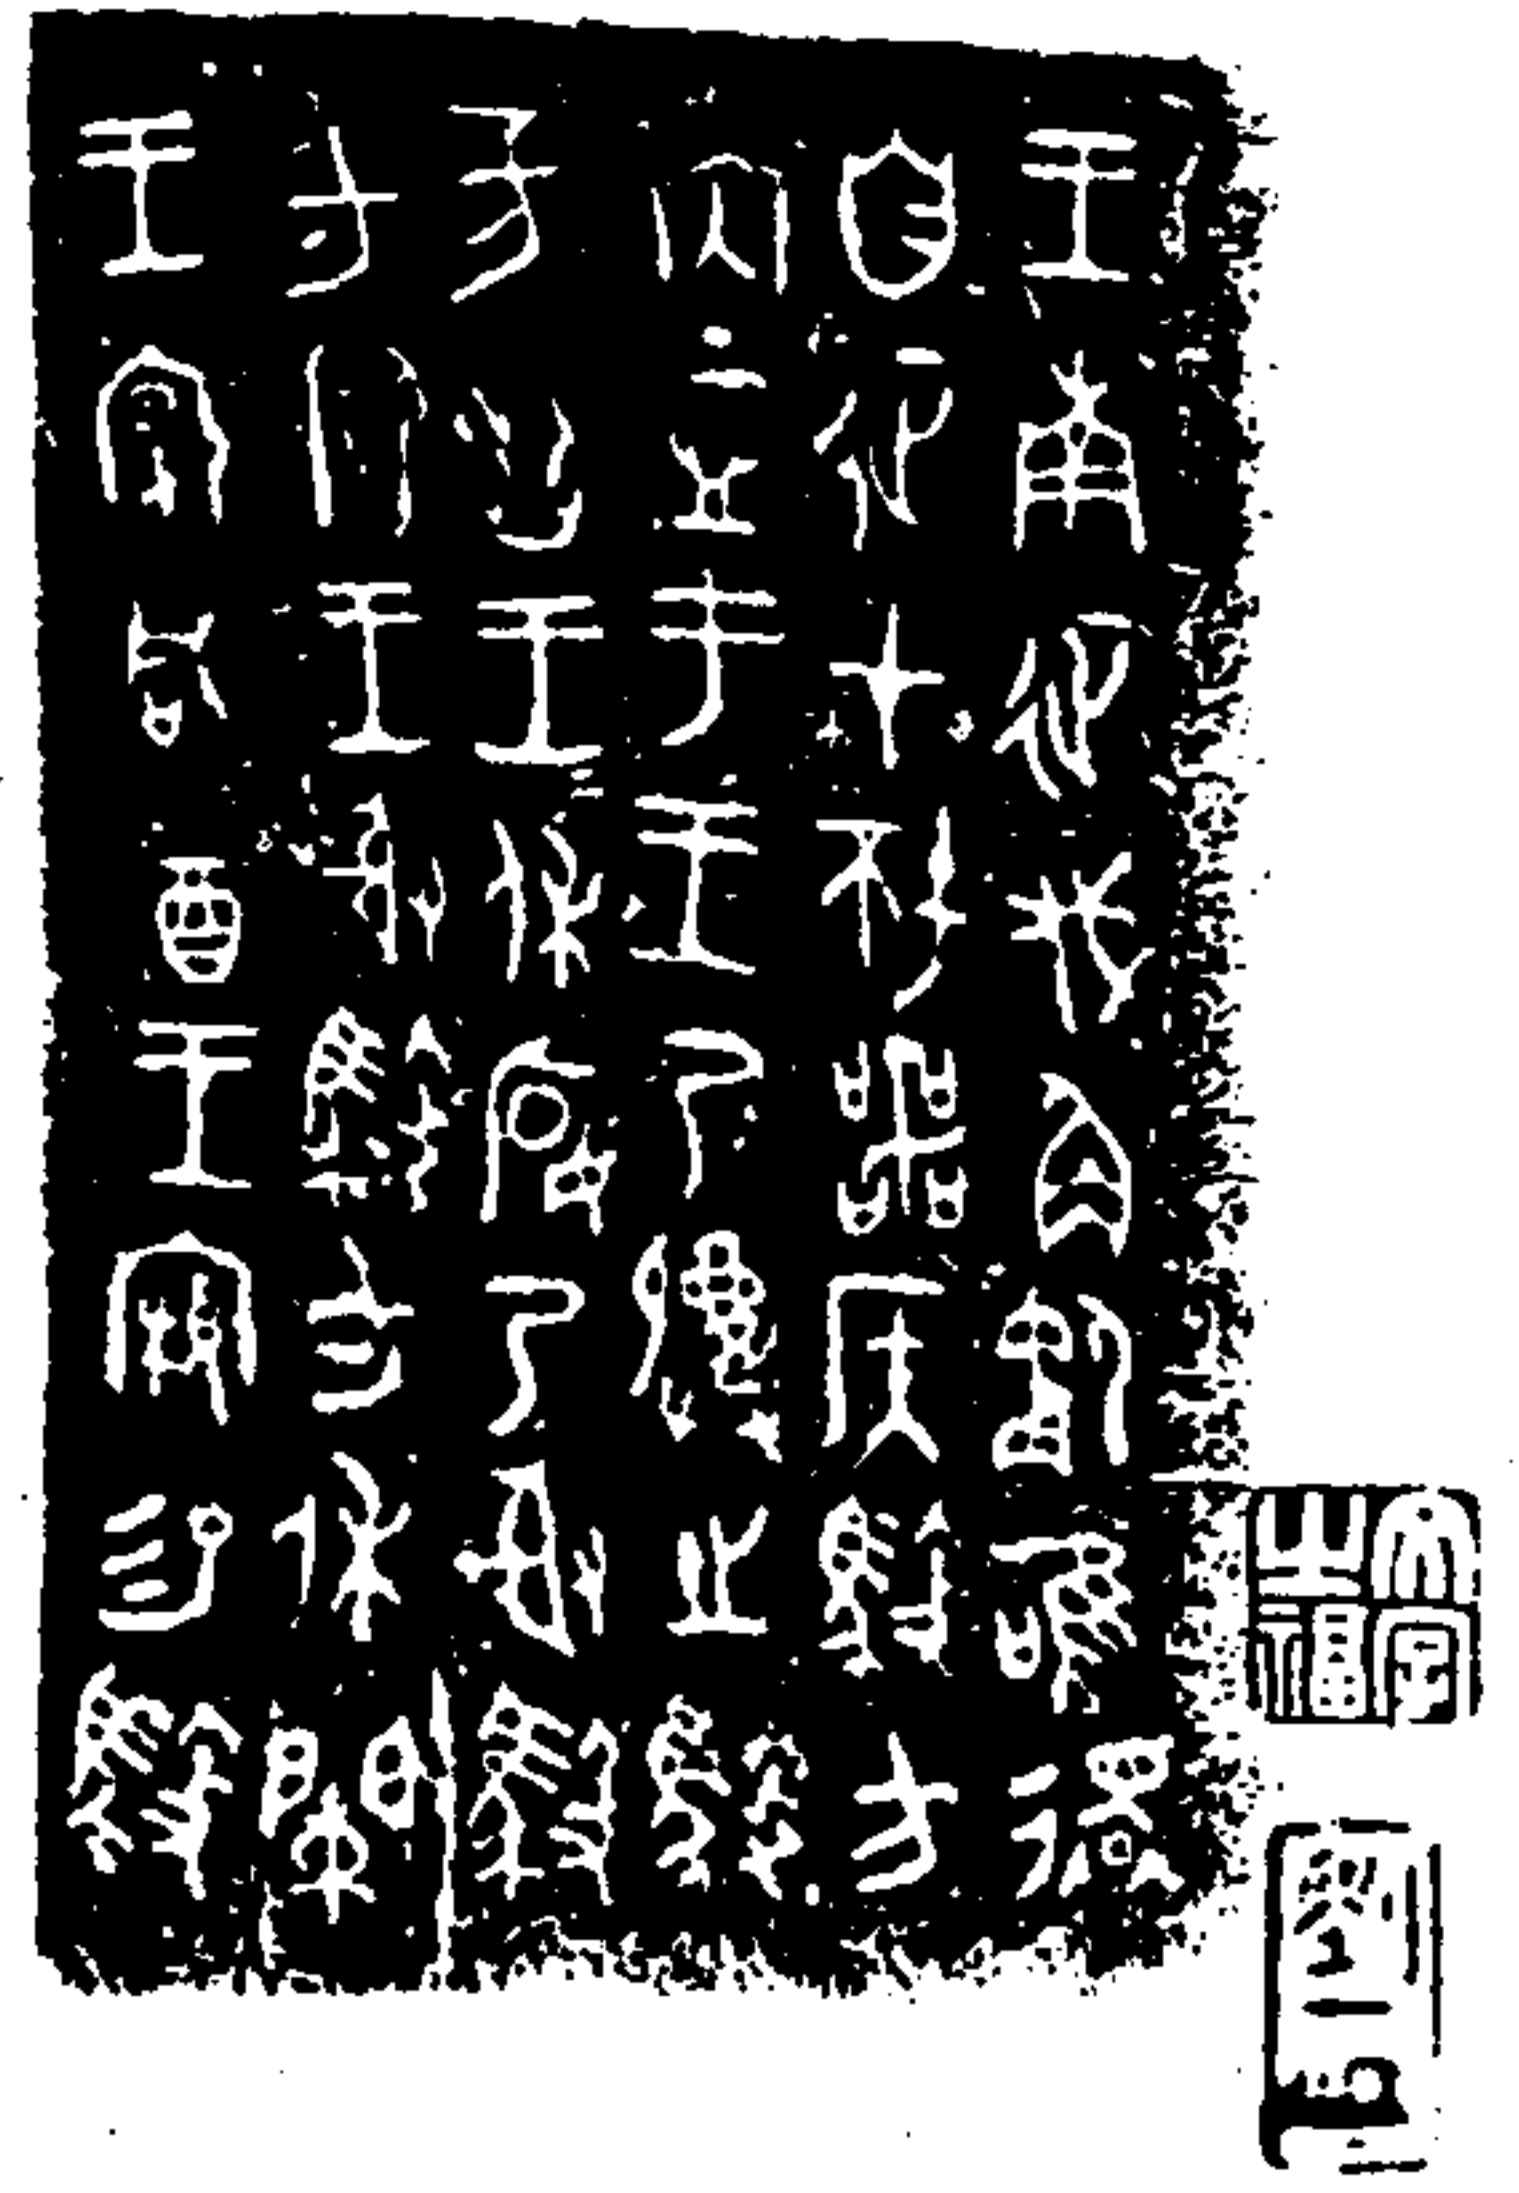 王南征伐角僪唯還
自征在坯噩侯馭方
内壺于王乃祼之馭
方友王王休匽乃射馭
方卿王射馭方休闌
王宴咸酓王寴易馭